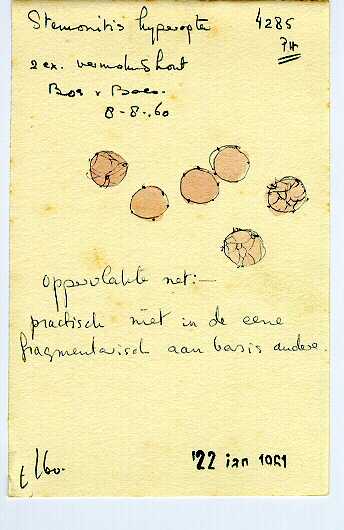 Stemonitis hyperopta 4285
PH
2 ex. vermolmd hout
8-8-.60
oppervlakte net:-
practisch niet in de eene
fragmentarisch aan basis andere.
t/60.
'22 jan 1961